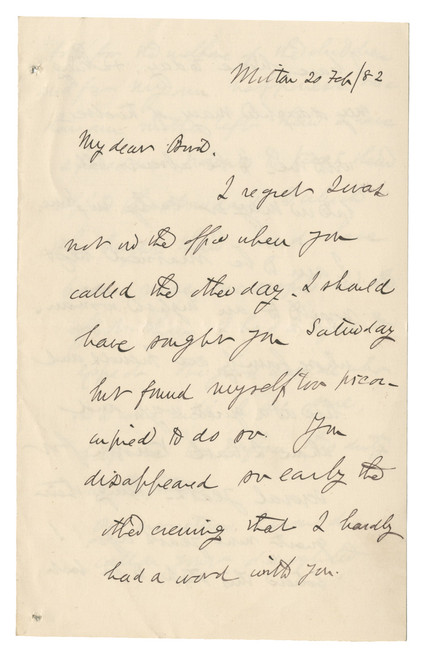 Milton 20 Feb/82
My dear
I regret I was
not in the office when you
called the other day. I should
have sought you Saturday
but found myself too preoc-
cupied to do so. You
disappeared so early the
other evening that I hardly
had a word with you.